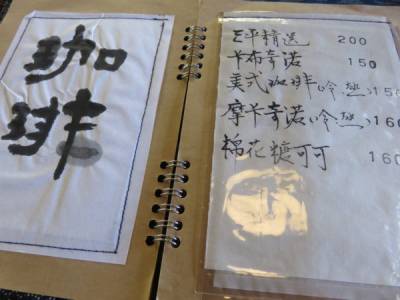 珈
琲
王平精选 200
卡布奇诺 150
美式珈琲(冷热)150
摩卡奇诺(冷热)160
棉花糖可可 160